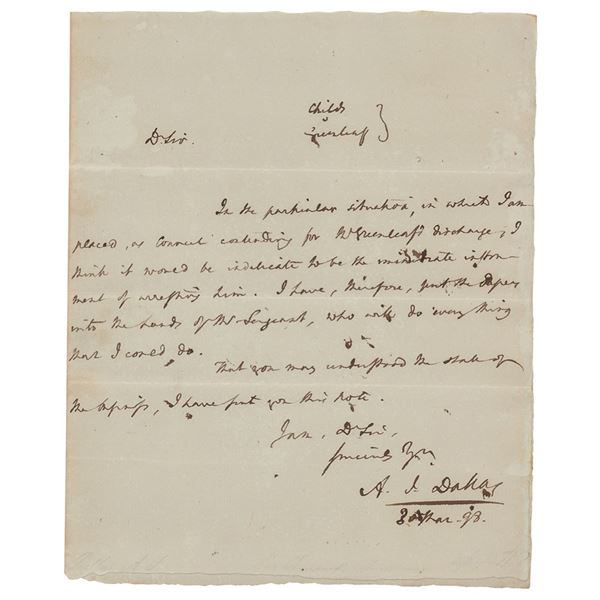 Childs
v
Greenleaf }
Dr Sir.
In the particular situation, in which I am
placed, as Council contending for Mr Greenleaf's discharge, I
think it would be indelicate to be the immediate instru-
ment of arresting him. I have, therefore, put the papers
into the hands of Mr Sergeant, who will do every thing
that I could do.
That you may understand the state of
the business, I have sent you this note.
I am, Dr Sir,
Sincerely Yrs
A. J. Dallas
Mar. 98.